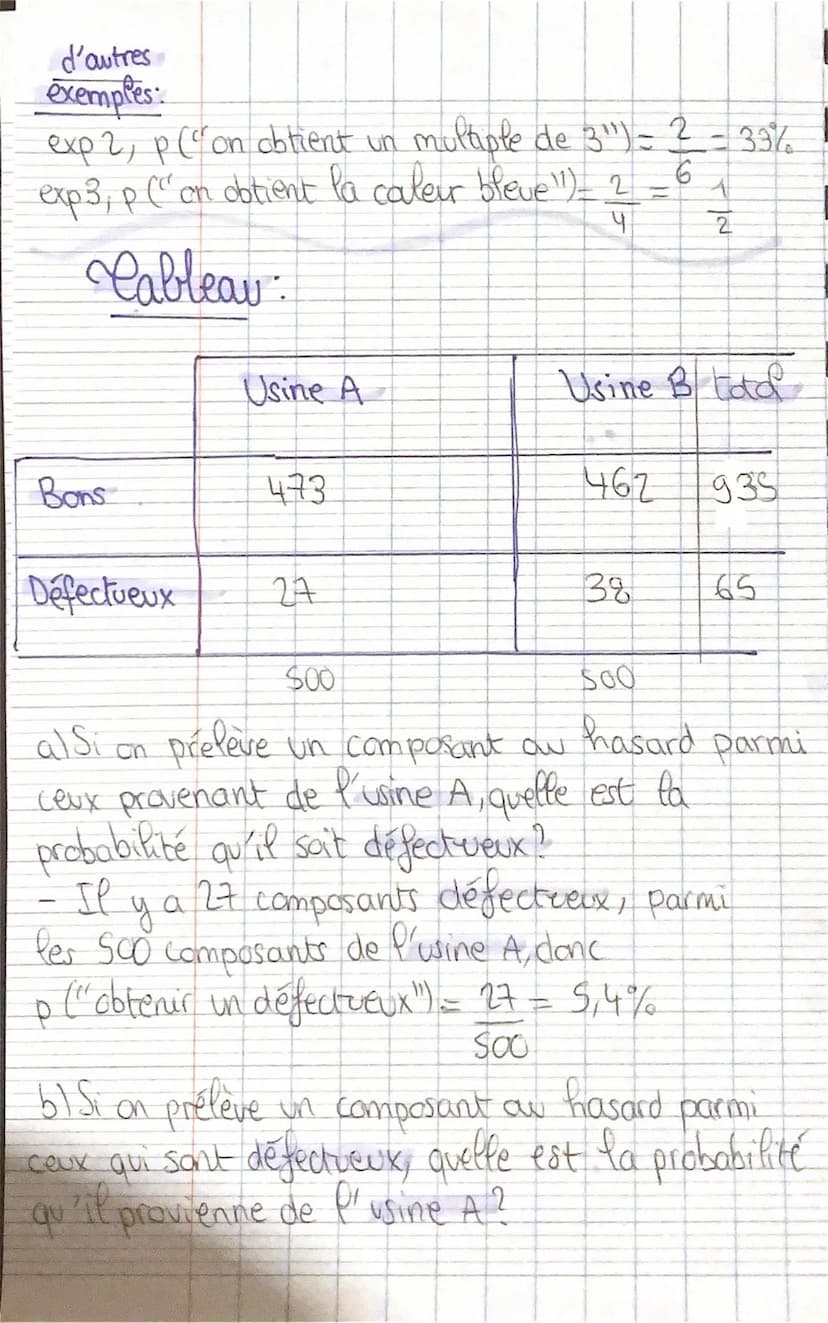 d'autres
exemples:
exp2, p ("on obtient un multiple de 3")= 2/6 = 33%
exp3, p ("on obtient la couleur bleue")= 2/4 = 1/2
Tableau:
Usine A Usine B total
Bons 473 462 935
Défectueux 27 38 65
500 500
a) Si on prélève un composant au hasard parmi
ceux provenant de l'usine A, quelle est la
probabilité qu'il soit défectueux?
- Il y a 27 composants défectueux, parmi
les 500 composants de l'usine A, donc
p ("obtenir un défectueux") = 27/500 = 5,4%
b) Si on prélève un composant au hasard parmi
ceux qui sont défectueux, quelle est la probabilité
qu'il provienne de l'usine A?